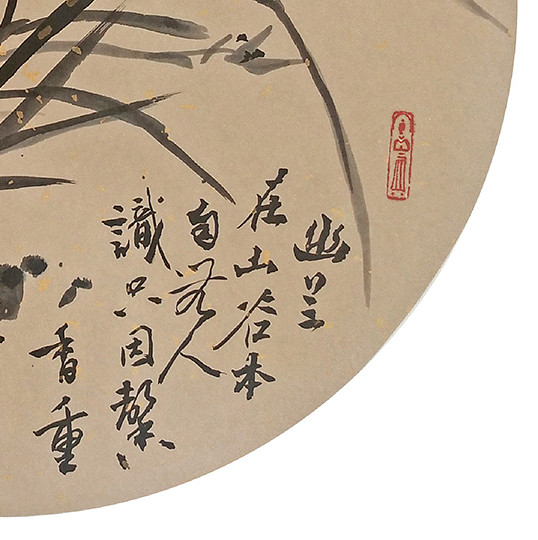 幽兰
在山谷本
自无人
識只因馨
香重